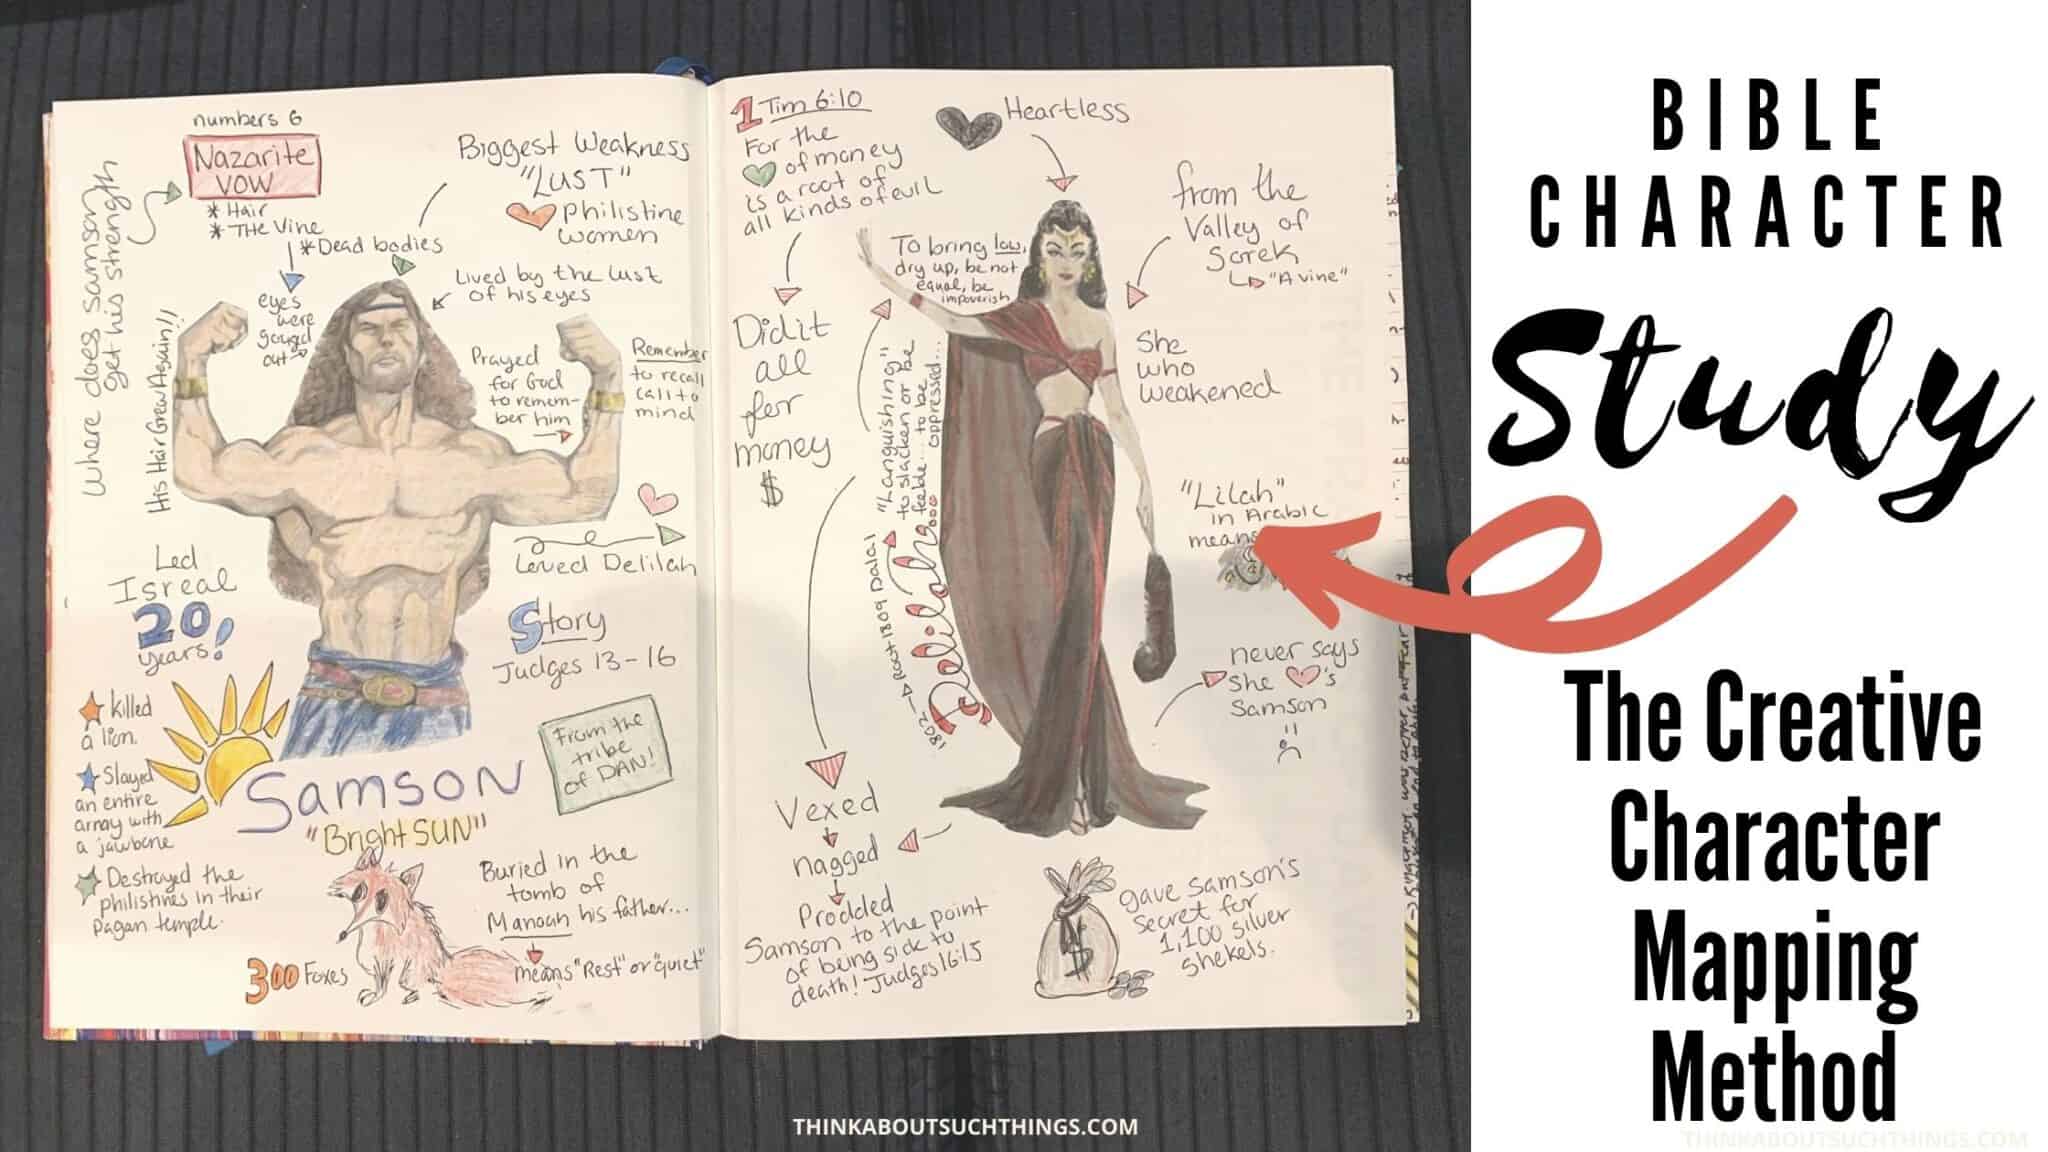 numbers 6
Nazarite
vow
* Hair
* THe Vine
* Dead bodies
Where does Samson
get his strength
His Hair Grew Again!!
eyes
were
gouged
out
Biggest Weakness
"LUST"
philistine
women
Lived by the lust
of his eyes
Prayed
for God
to remem-
ber him
Remember
to recall
call to
mind
Loved Delilah
Led
Isreal
20
years!
Story
Judges 13-16
killed
a lion.
Slayed
an entire
array with
a jawbone
Destroyed the
philistines in their
Pagan temple.
From the
tribe
of DAN!
Samson
"Bright SUN"
300 Foxes
Buried in the
tomb of
Manoah his father...
means "Rest" or "quiet"
1 Tim 6:10
For the
of money
is a root of
all kinds of evil
Did it
all
for
money
$
Heartless
To bring low,
dry up, be not
equal, be
impoverish
from the
Valley of
Sorek
"A vine"
She
who
weakened
"Languishing"
to slacken or be
feeble... to be
oppressed...
1802 Root 1809 Dalal
Delilah
"Lilah"
in Arabic
means
never says
she 's
Samson
Vexed
nagged
Prodded
Samson to the point
of being sick to
death! Judges 16:15
$
gave Samson's
Secret for
1,100 silver
Shekels.
BIBLE
CHARACTER
Study
The Creative
Character
Mapping
Method
THINKABOUTSUCHTHINGS.COM
THINKABOUTSUCHTHINGS.COM